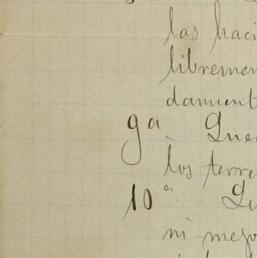 las haci
libremen
damient
9a. Que
los terre
10a. Qu
ni mejo